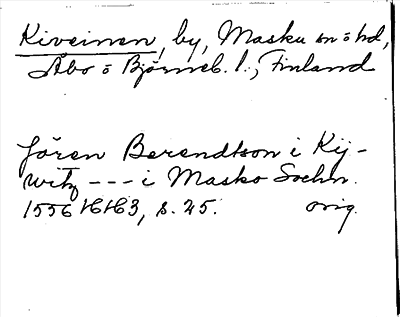 Kiveinen, by, Masku sn o hd,
Åbo o Björneb. l., Finland
Jören Berendtson i Kij-
witz --- i Masko Sochn.
1556 16163, s. 25. orig.